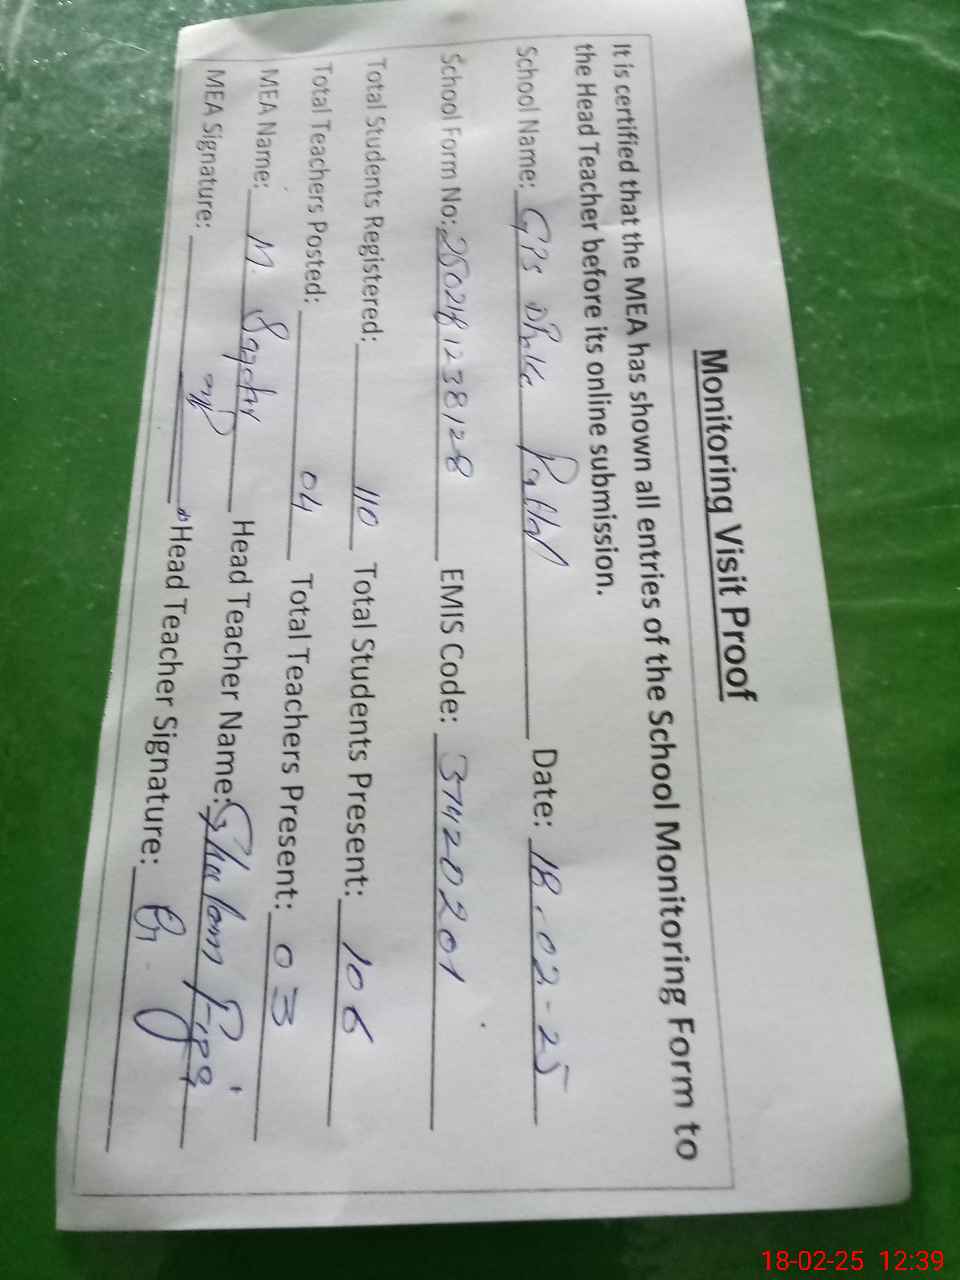 Monitoring Visit Proof
It is certified that the MEA has shown all entries of the School Monitoring Form to
the Head Teacher before its online submission.
School Name: GPS Date: 18-02-25
School Form No: 2502181238128 EMIS Code: 37420201
Total Students Registered: 110 Total Students Present: 106
Total Teachers Posted: 04 Total Teachers Present: 03
MEA Name: M. Head Teacher Name: Ghulam
MEA Signature: Head Teacher Signature:
18-02-25 12:39